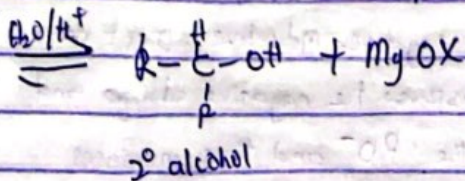 H2O/H+
H
R-C-OH + Mg OX
R
2° alcohol